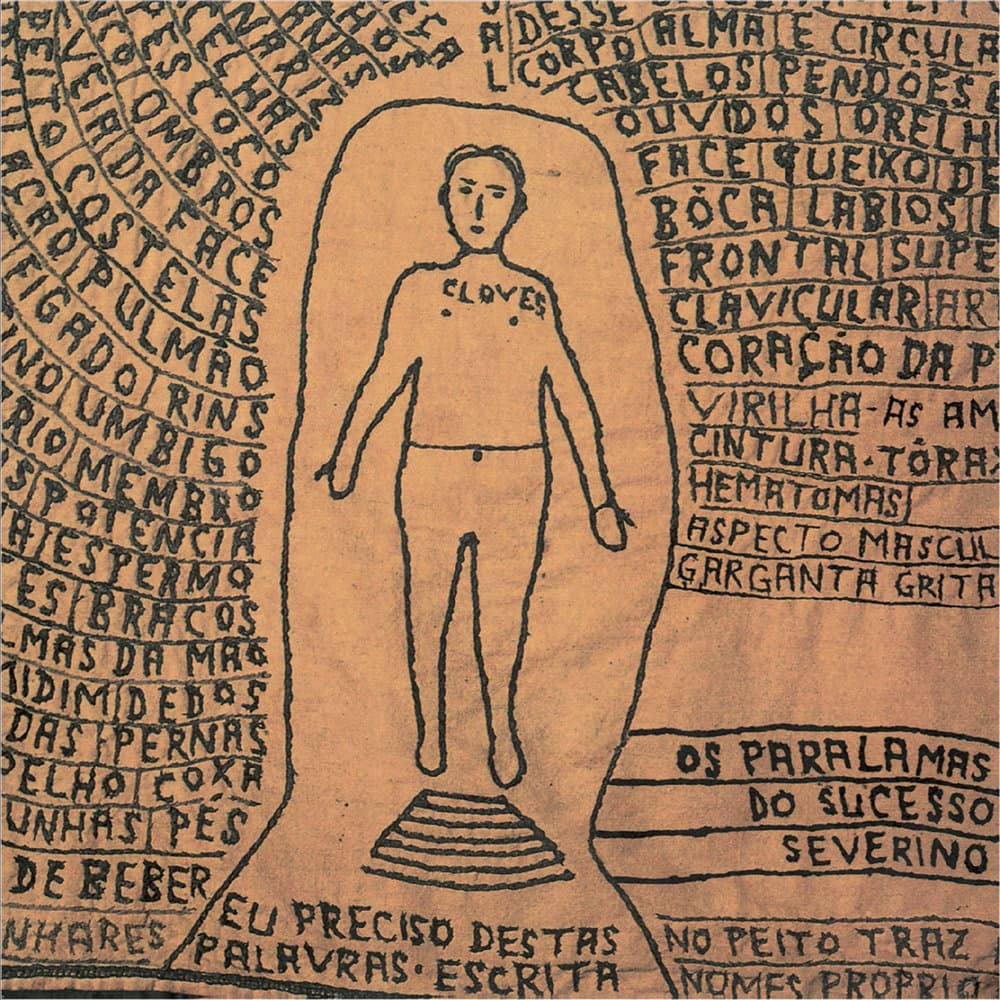 NARIZ
PESCOÇO
OMBROS
VEIA DA FACE
PEITO COSTELAS
PULMÃO
FIGADO RINS
NO UMBIGO
RIO MEMBRO
S POTENCIA
A ESPERMO
ES BRACOS
LMAS DA MÃO
DEDOS
DAS PERNAS
OELHO COXA
UNHAS PÉS
DE BEBER
NHARES
CLOVES
EU PRECISO DESTAS
PALAVRAS. ESCRITA
DESSE
CORPO ALMA E CIRCULA
CABELOS PENDÕES E
OUVIDOS ORELH
FACE QUEIXO DE
BÔCA LABIOS L
FRONTAL SUPE
CLAVIÇULAR AR
CORAÇÃO DA P
VIRILHA-AS AM
CINTURA. TÓRAX
HEMATOMAS
ASPECTO MASCUL
GARGANTA GRITA
OS PARALAMAS
DO SUCESSO
SEVERINO
NO PEITO TRAZ
NOMES PROPRIO